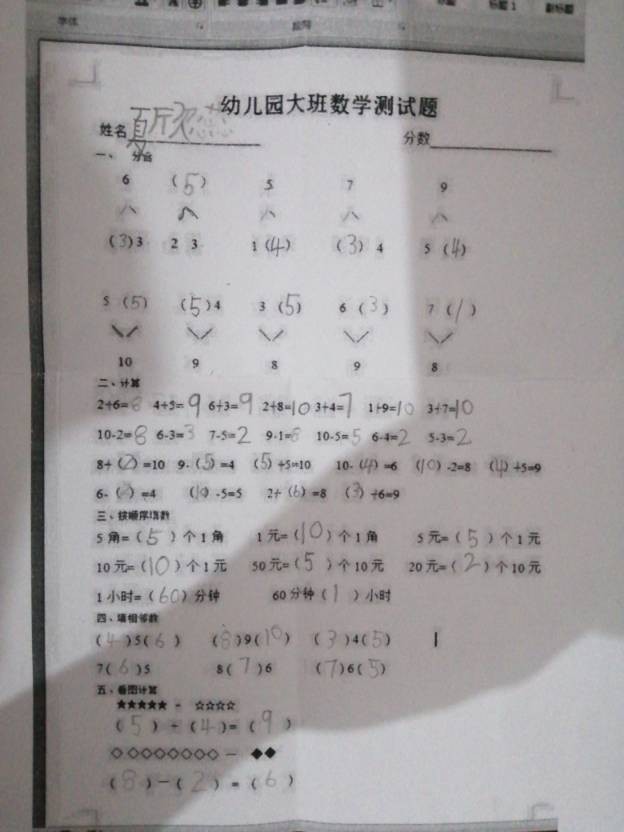 字体
标题 1
副标题
幼儿园大班数学测试题
姓名 夏 分数
一、分合
6 (5) 5 7 9
(3)3 2 3 1(4) (3)4 5(4)
5(5) (5)4 3(5) 6(3) 7(1)
10 9 8 9 8
二、计算
2+6=8 4+5=9 6+3=9 2+8=10 3+4=7 1+9=10 3+7=10
10-2=8 6-3=3 7-5=2 9-1=8 10-5=5 6-4=2 5-3=2
8+(2)=10 9-(5)=4 (5)+5=10 10-(4)=6 (10)-2=8 (4)+5=9
6-(2)=4 (10)-5=5 2+(6)=8 (3)+6=9
三、按顺序填数
5角=(5)个1角 1元=(10)个1角 5元=(5)个1元
10元=(10)个1元 50元=(5)个10元 20元=(2)个10元
1小时=(60)分钟 60分钟(1)小时
四、填相邻数
(4)5(6) (8)9(10) (3)4(5)
7(6)5 8(7)6 (7)6(5)
五、看图计算
★★★★★ - ☆☆☆☆
(5)+(4)=(9)
◇◇◇◇◇◇◇◇ — ◆◆
(8)-(2)=(6)